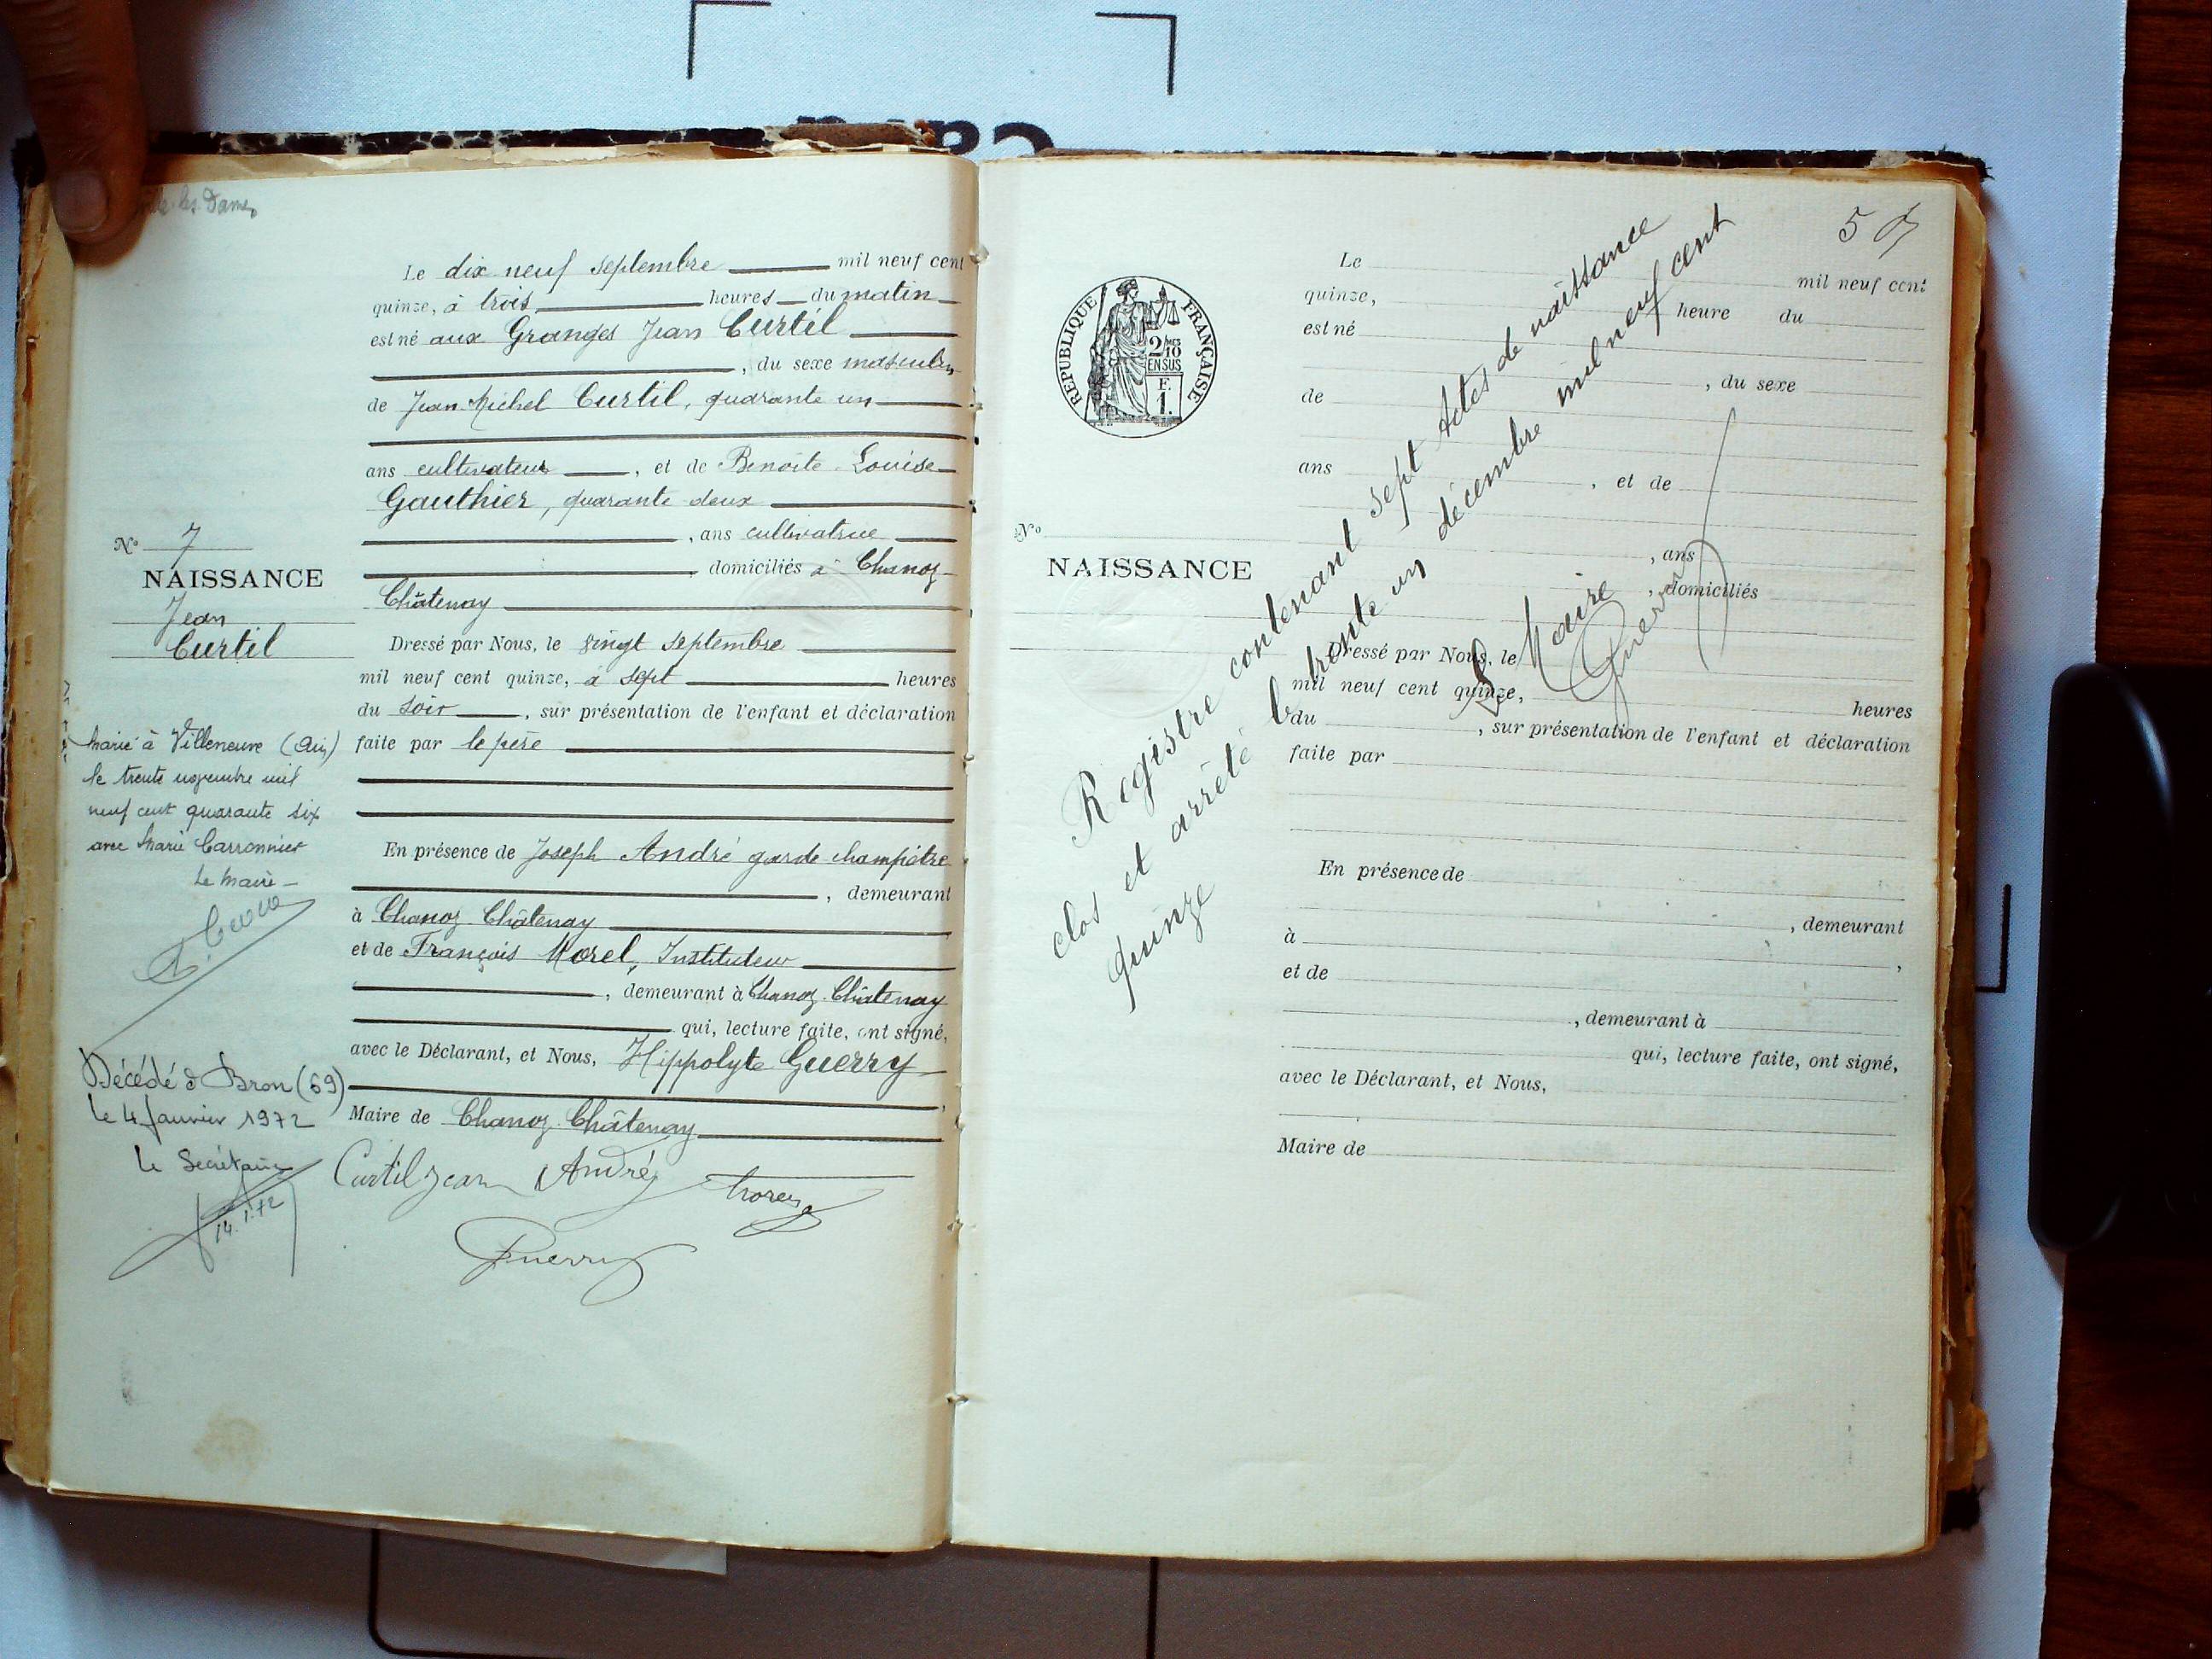 les Dames
Le dix neuf septembre mil neuf cent
quinze, à trois heures du matin
est né aux Granges Jean Curtil
, du sexe masculin
de Jean Michel Curtil, quarante un
ans cultivateur , et de Benoite Louise
Gauthier, quarante deux
, ans cultivatrice
domiciliés à Chanoz
Châtenay
Dressé par Nous, le vingt septembre
mil neuf cent quinze, à sept heures
du soir , sur présentation de l'enfant et déclaration
faite par le père
En présence de Joseph André garde champêtre
, demeurant
à Chanoz Châtenay
et de François Morel, Instituteur
, demeurant à Chanoz Châtenay
qui, lecture faite, ont signé,
avec le Déclarant, et Nous, Hippolyte Guerry
,
Maire de Chanoz Châtenay
Curtil Jean André Morel
Guerry
No 7
NAISSANCE
Jean
Curtil
Marié à Villeneuve (Ain)
le trente novembre mil
neuf cent quarante six
avec Marie Carronnier
Le Maire
Décédé à Bron (69)
le 4 Janvier 1972
le Secrétaire
14.1.72
REPUBLIQUE FRANÇAISE
2/10 MES
EN SUS
F.
1.
Le mil neuf cent
quinze, heure du
est né
, du sexe
de
ans , et de
, ans
, domiciliés
No
NAISSANCE
Dressé par Nous, le
mil neuf cent quinze, heures
du , sur présentation de l'enfant et déclaration
faite par
En présence de
, demeurant
à ,
et de
, demeurant à
qui, lecture faite, ont signé,
avec le Déclarant, et Nous,
Maire de
Registre contenant sept Actes de naissance
clos et arrêté le trente un décembre mil neuf cent
quinze
Le Maire
Guerry